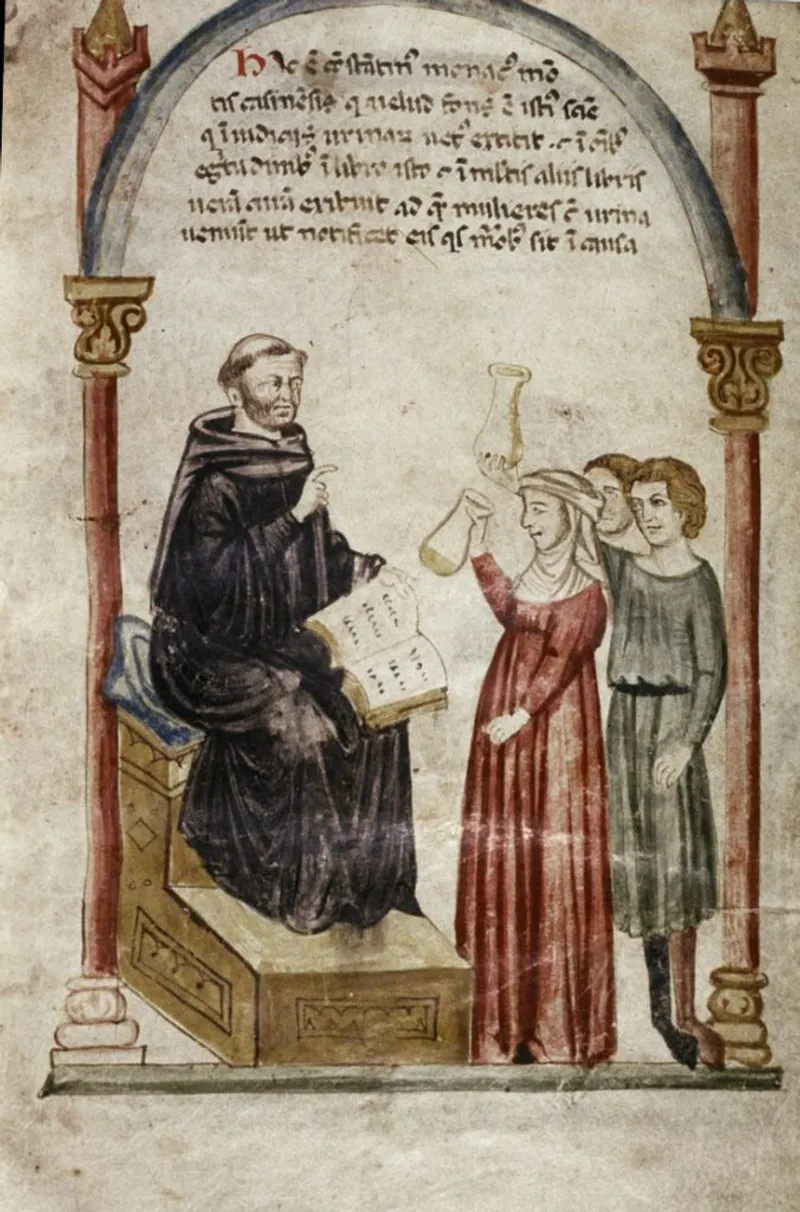 Hic ē ɔ̄stātinꝰ monacꝰ mō
tis casinēsis q uelud fons ē istiꝰ sciē
q ī iudiciis urinaꝝ extitit ⁊ ī oībꝰ
egtudinibꝰ ī libro isto ⁊ ī mltis aliis libris
uerā curā exibuit ad quē mulieres cū urina
ueniūt ut notificet eis qs morbꝰ sit ī causa